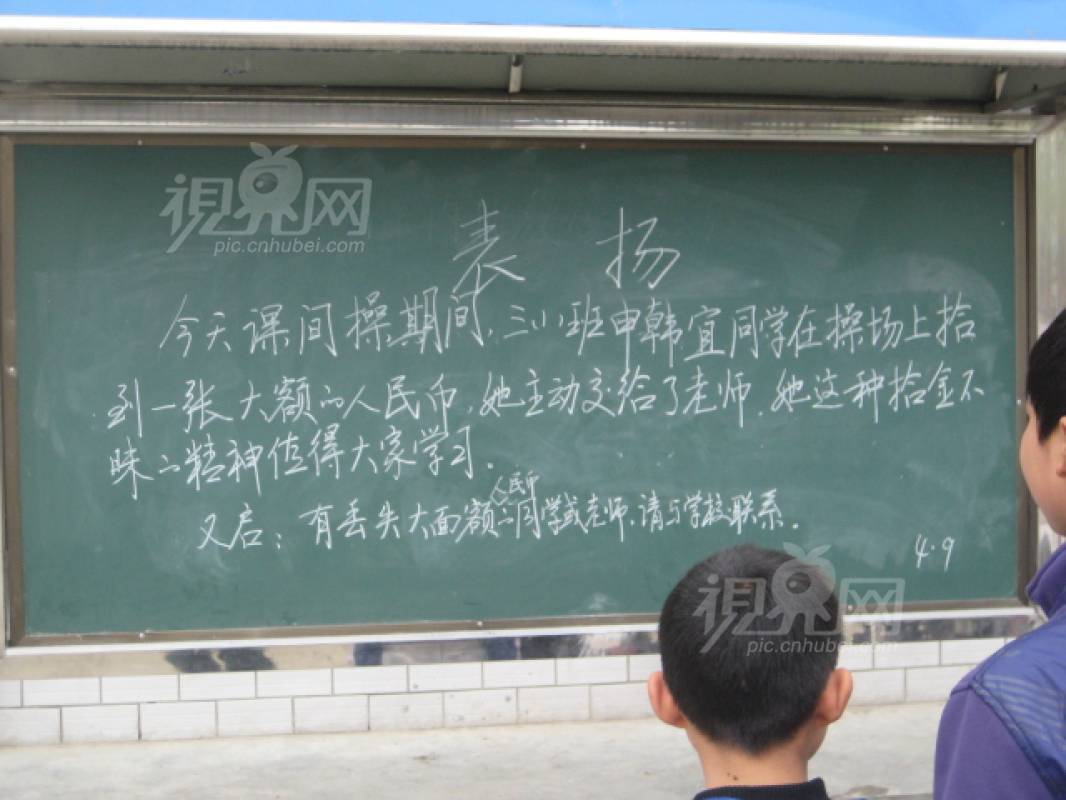 視界网
pic.cnhubei.com
表扬
今天课间操期间，三（1）班申韩宜同学在操场上拾
到一张大额的人民币，她主动交给了老师，她这种拾金不
昧的精神值得大家学习．
又启：有丢失大面额人民币的同学或老师，请与学校联系．
4.9
視界网
pic.cnhubei.com